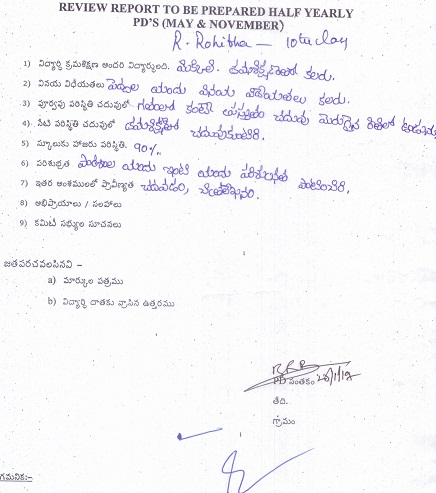 REVIEW REPORT TO BE PREPARED HALF YEARLY
PD'S (MAY & NOVEMBER)
R. Rohitha - 10th clay
1) విద్యార్థి క్రమశిక్షణ అందరి విద్యార్థులది. క్రమశిక్షణతో కలదు.
2) వినయ విధేయతలు పెద్దల యందు వినయ విధేయతలు కలదు.
3) పూర్వపు పరిస్థితి చదువులో గతంలో కంటే ప్రస్తుతం చదువు మెరుగైన రీతిలో ఉన్నది
4) నేటి పరిస్థితి చదువులో క్రమశిక్షణతో చదువుకుంటుంది.
5) స్కూలుకు హాజరు పరిస్థితి. 90%
6) పరిశుభ్రత పాఠశాల యందు ఇంటి యందు పరిశుభ్రత పాటించును.
7) ఇతర అంశములలో ప్రావీణ్యత చదవడం, చిత్రలేఖనం.
8) అభిప్రాయాలు / సలహాలు
9) కమిటీ సభ్యుల సూచనలు
జతపరచవలసినవి –
a) మార్కుల పత్రము
b) విద్యార్థి దాతకు వ్రాసిన ఉత్తరము
PD సంతకం
తేది.
గ్రామం
గమనిక:-